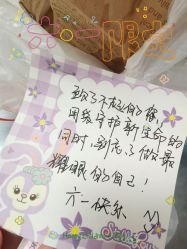 六一限定
致了不起的你,
用爱守护新生命的
同时,别忘了做最
耀眼的自己!
六一快乐